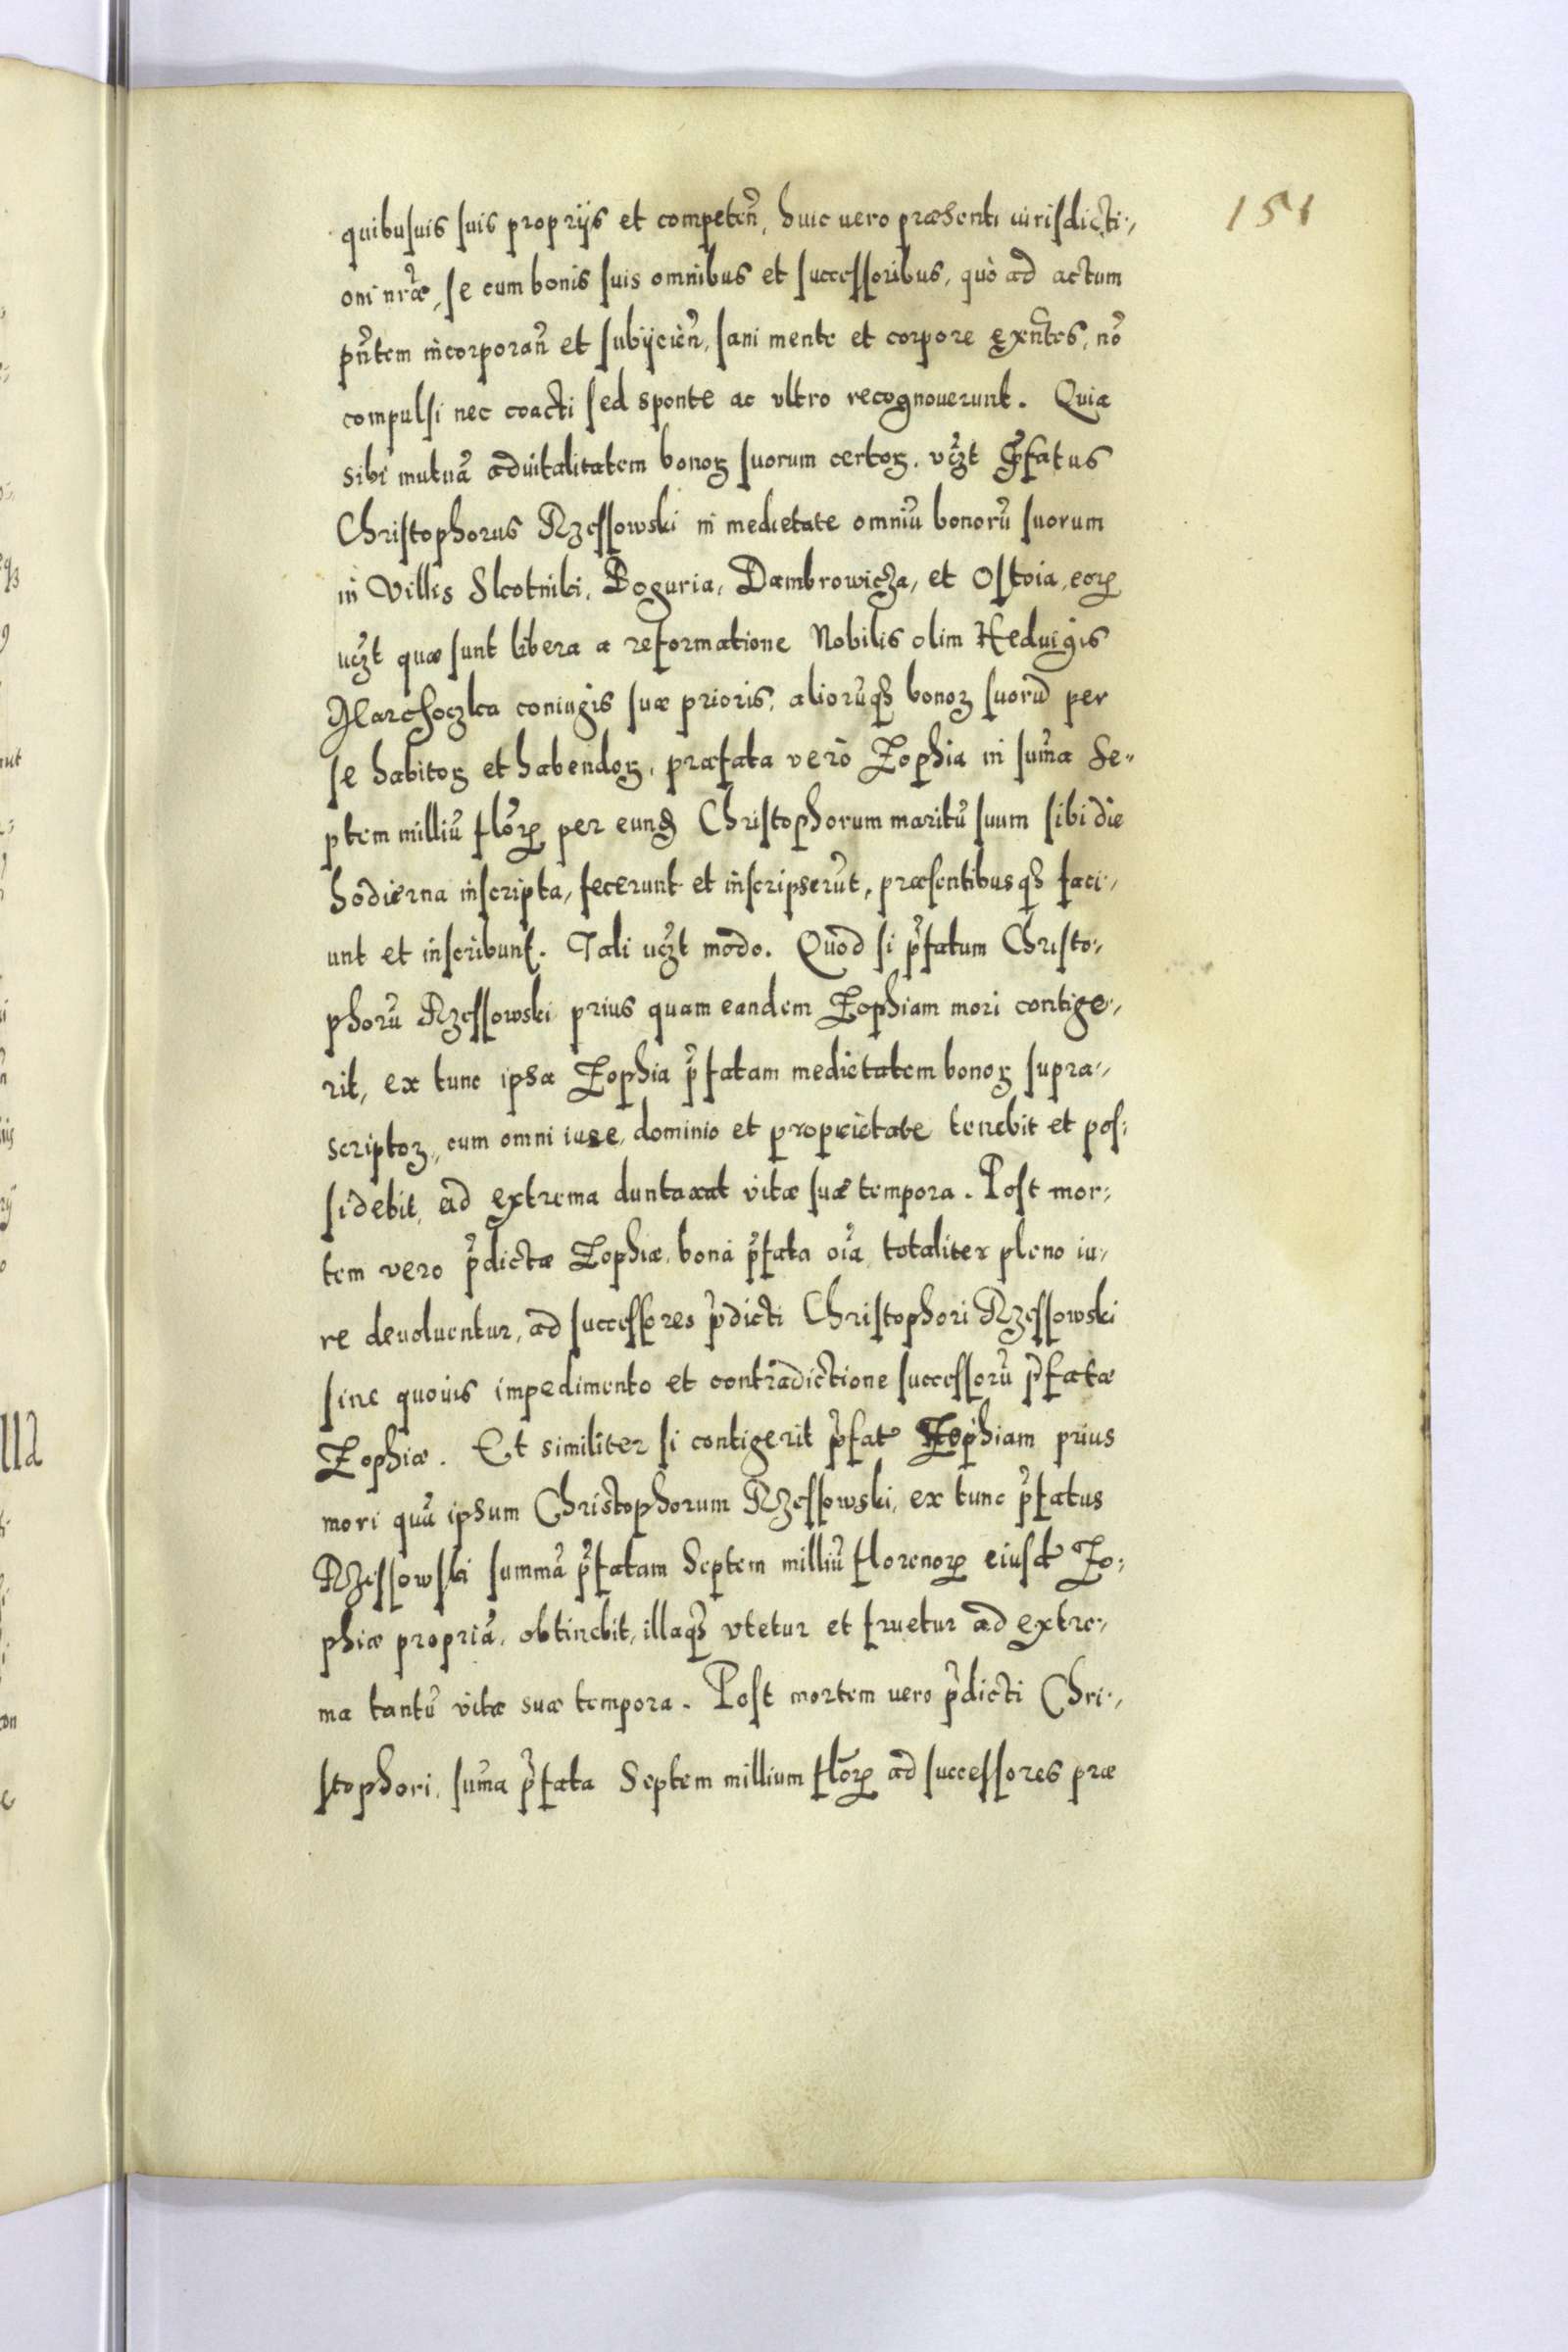 151
quibusuis suis proprijs et competeñ, huic uero præsenti iurisdicti-
oni nr̃æ, se cum bonis suis omnibus et successoribus, quò ad actum
pñtem incorporañ et subijcieñ, sani mente et corpore exñtes, nõ
compulsi nec coacti sed sponte ac vltro recognouerunt. Quia
sibi mutuã aduitalitatem bonoꝝ suorum certoꝝ, vczt p̃fatus
Christophorus Rzessowski in medietate omniũ bonorũ suorum
in Villis Skotniki, Boguria, Dambrowicza, et Ostoia, eoꝝ
uczt quæ sunt libera a reformatione Nobilis olim Heduigis
Marchoczka coniugis suæ prioris, aliorũqꝫ bonoꝝ suorũ per
se habitoꝝ et habendoꝝ, præfata verò Zophia in sum̃a Se-
ptem milliũ flõꝝ per eund Christophorum maritũ suum sibi die
hodierna inscripta, fecerunt et inscripserũt, præsentibusqꝫ faci-
unt et inscribunt. Tali uczt modo. Quod si p̃fatum Christo-
phorũ Rzessowski prius quam eandem Zophiam mori contige-
rit, ex tunc ipsa Zophia p̃fatam medietatem bonoꝝ supra-
scriptoꝝ, cum omni iure, dominio et proprietate tenebit et pos-
sidebit, ad extrema duntaxat vitæ suæ tempora. Post mor-
tem vero p̃dictæ Zophiæ, bona p̃fata oĩa totaliter pleno iu-
re deuoluentur, ad successores p̃dicti Christophori Rzessowski
sine quouis impedimento et contradictione successorũ p̃fatæ
Zophiæ. Et similiter si contigerit p̃fat Zophiam prius
mori quã ipsum Christophorum Rzessowski, ex tunc p̃fatus
Rzessowski summã p̃fatam Septem milliũ florenoꝝ eiusd Zo-
phiæ propriã, obtinebit, illaqꝫ vtetur et fruetur ad extre-
ma tantũ vitæ suæ tempora. Post mortem uero p̃dicti Chri-
stophori, sum̃a p̃fata Septem millium flõꝝ ad successores præ